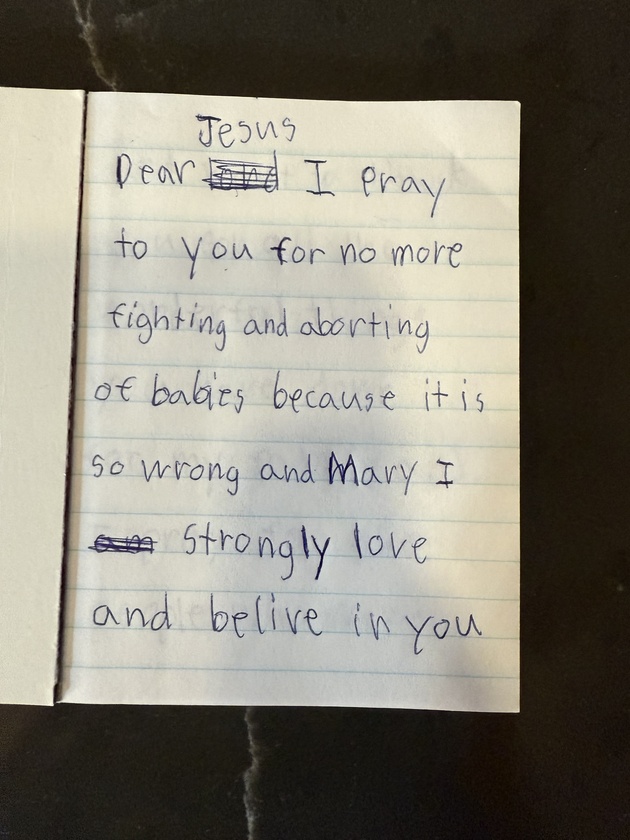 Jesus
Dear I pray
to you for no more
fighting and aborting
of babies because it is
so wrong and Mary I
strongly love
and belive in you